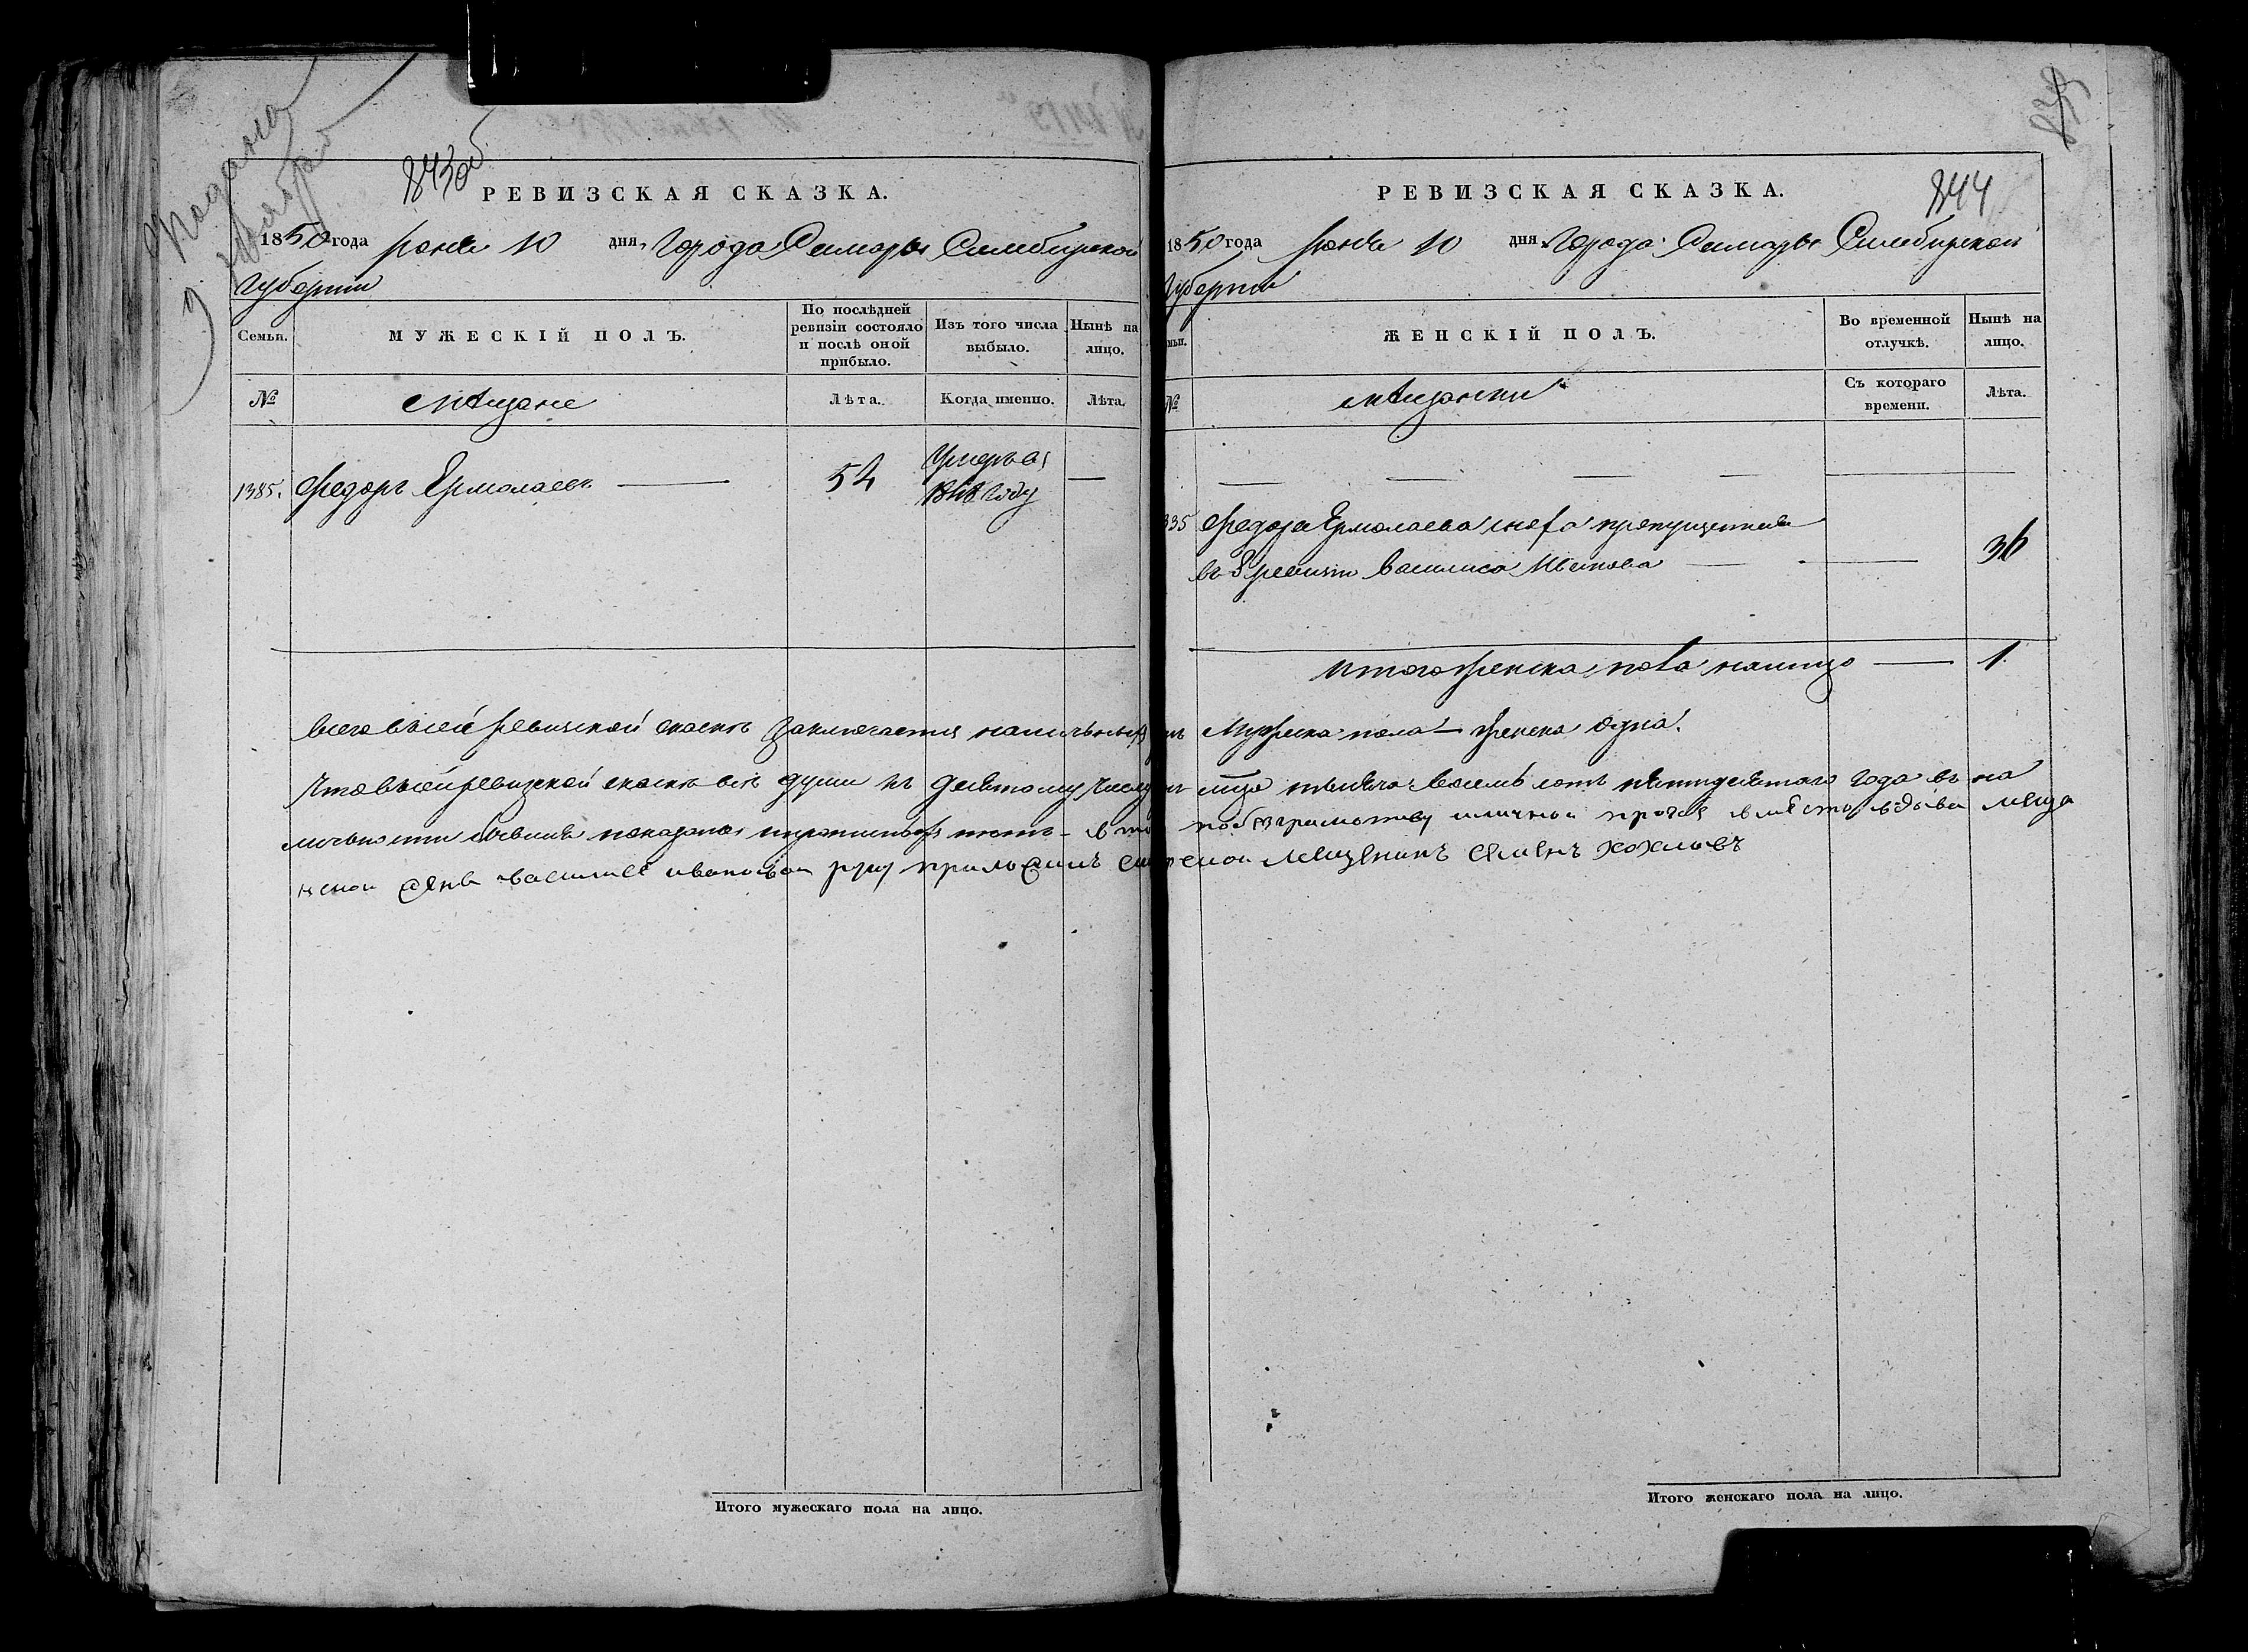 Подана
9 Ноября
843об
РЕВИЗСКАЯ СКАЗКА.
1850 года Июня 10 дня, Города Самары Симбирской
Губернии
Семьи.
МУЖЕСКІЙ ПОЛЪ.
По послѣдней ревизіи состояло и послѣ оной прибыло.
Изъ того числа выбыло.
Нынѣ на лицо.
№
Мѣщане
Лѣта.
Когда именно.
Лѣта.
1385. Федоръ Ермолаевъ — 54 Умеръ въ —
году
Итого мужескаго пола на лицо.
844
РЕВИЗСКАЯ СКАЗКА.
1850 года Июня 10 дня Города Самары Симбирской
Губернии
мьи.
ЖЕНСКІЙ ПОЛЪ.
Во временной отлучкѣ.
Нынѣ на лицо.
№
Мѣщанки
Съ котораго времени.
Лѣта.
Федора Ермолаева жена пропущенная
въ 8 ревизіи Василиса Иванова — — 36
Итого женска пола налицо — 1.
всего въ сей ревизской сказкѣ заключается наличныхъ Мужеска пола — женска одна.
Что в сей ревизской сказкѣ всѣ души къ десятому числу тысяча восемь сотъ пятидесятаго года въ на
личности бывшие показаны и прописныхъ нѣтъ – в томъ по безграмотству и личной прозбѣ вместо вдовы меща
нской жены василисы ивановой руку приложилъ самарской мещенинъ семенъ хохловъ
Итого женскаго пола на лицо.